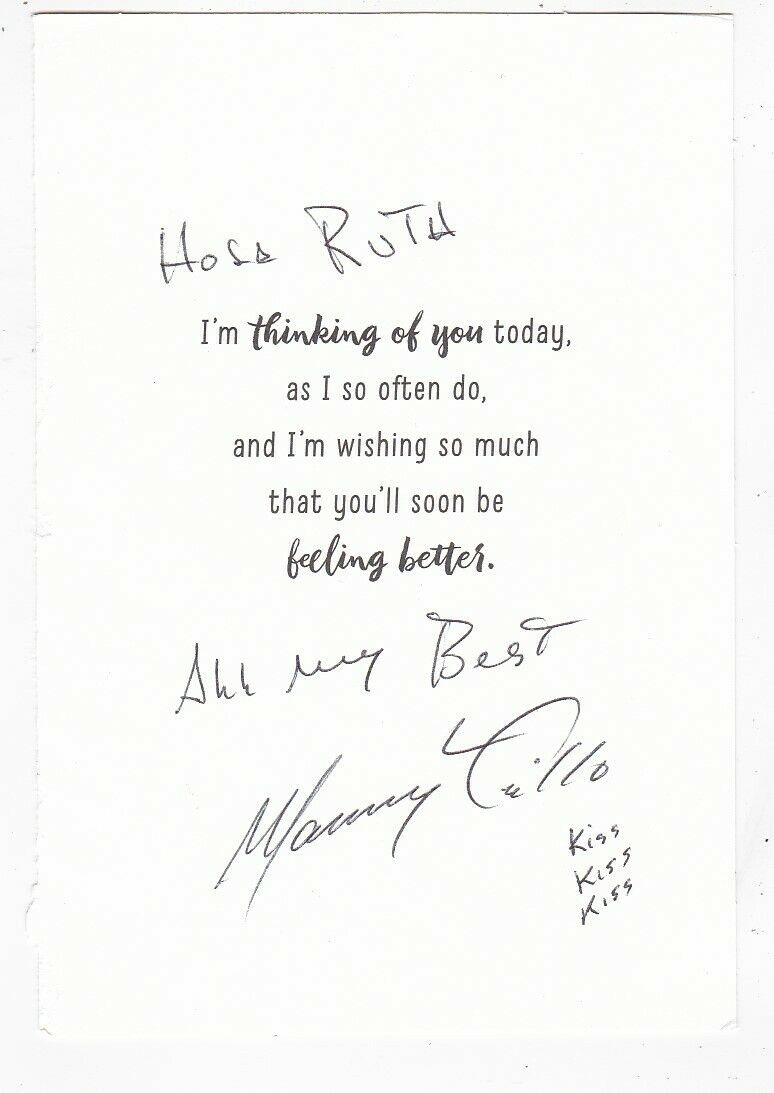 Hola Ruth
I'm thinking of you today,
as I so often do,
and I'm wishing so much
that you'll soon be
feeling better.
All my Best
Manny Trillo
Kiss
Kiss
Kiss